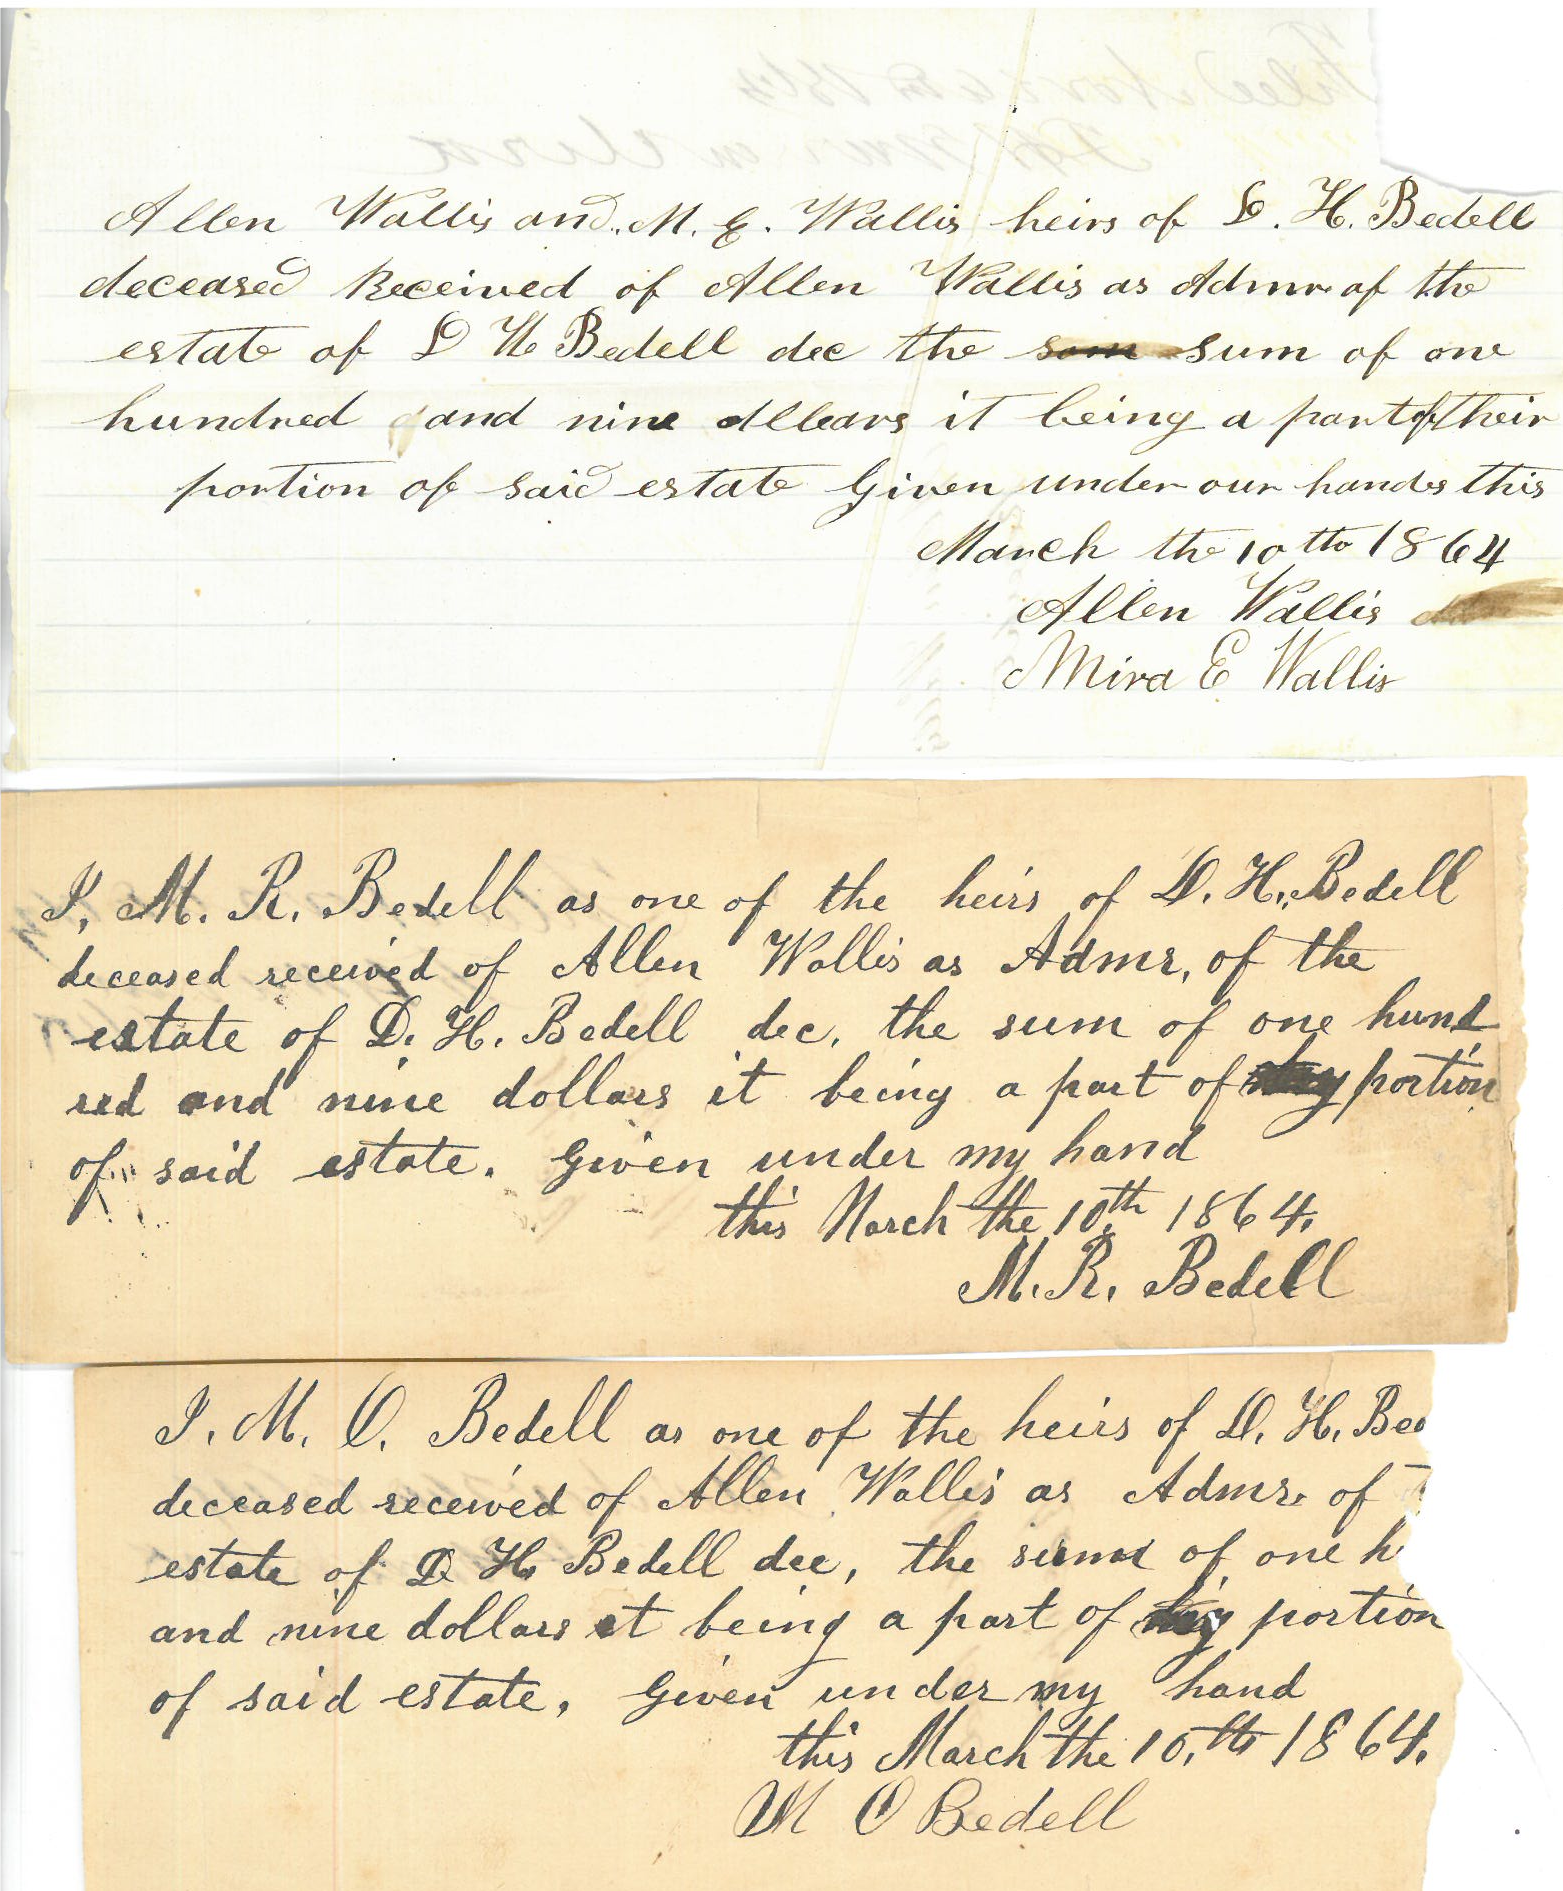 Allen Wallis and. M. E. Wallis heirs of D. H. Bedell
deceased Received of Allen Wallis as Admr. of the
estate of D H Bedell dec the som sum of one
hundred and nine dllears it being a part of their
portion of said estate Given under our handes this
March the 10th 1864
Allen Wallis
Mira E Wallis
I, M. R. Bedell as one of the heirs of D. H. Bedell
deceased received of Allen Wallis as Admr, of the
estate of D. H. Bedell dec, the sum of one hund
red and nine dollars it being a part of my portion
of said estate. Given under my hand
this March the 10th 1864.
M. R. Bedell
I. M. O. Bedell as one of the heirs of D. H. Bed
deceased received of Allen Wallis as Admr. of
estate of D H Bedell dec, the sum of one h
and nine dollars it being a part of my portion
of said estate, Given under my hand
this March the 10.th 1864.
M O Bedell